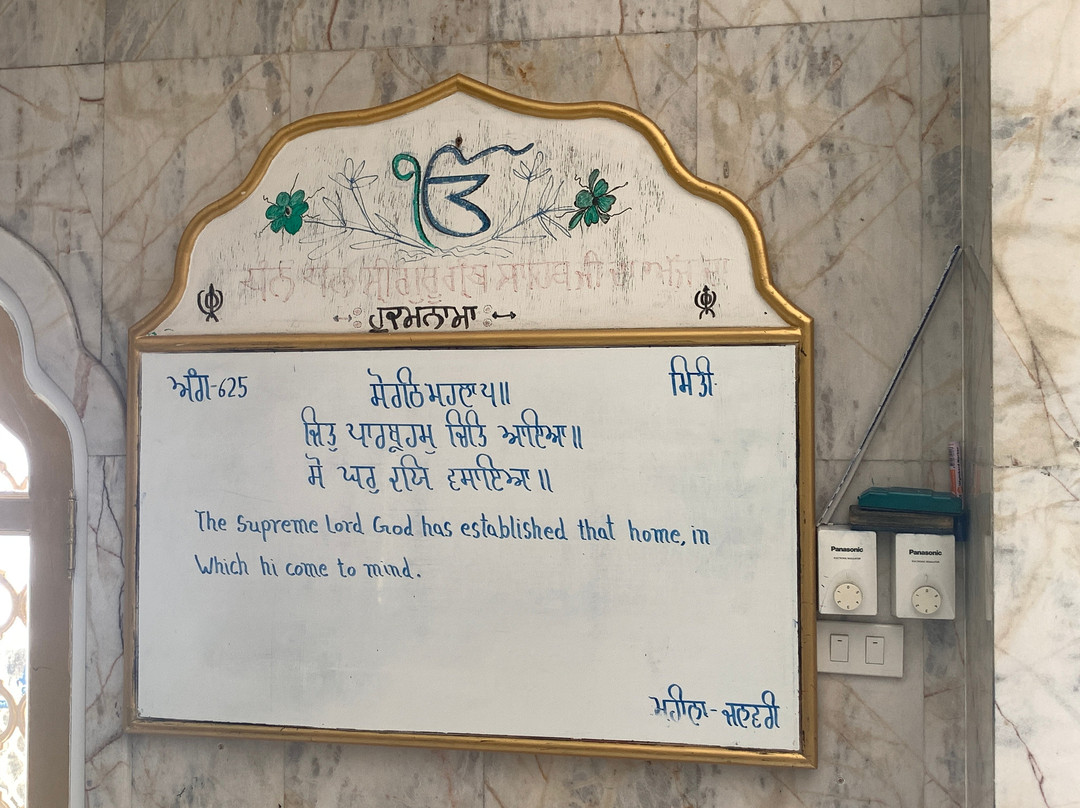 ੴ
ਧੰਨ ਧੰਨ ਸ੍ਰੀ ਗੁਰੂ ਗ੍ਰੰਥ ਸਾਹਿਬ ਜੀ ਦਾ ਅੱਜ ਦਾ
ਹੁਕਮਨਾਮਾ
ਅੰਗ-625 ਸੋਰਠਿ ਮਹਲਾ ੫॥ ਮਿਤੀ
ਜਿਤੁ ਪਾਰਬ੍ਰਹਮੁ ਚਿਤਿ ਆਇਆ॥
ਸੋ ਘਰੁ ਦਯਿ ਵਸਾਇਆ॥
The Supreme Lord God has established that home, in
Which hi come to mind.
Panasonic
Panasonic